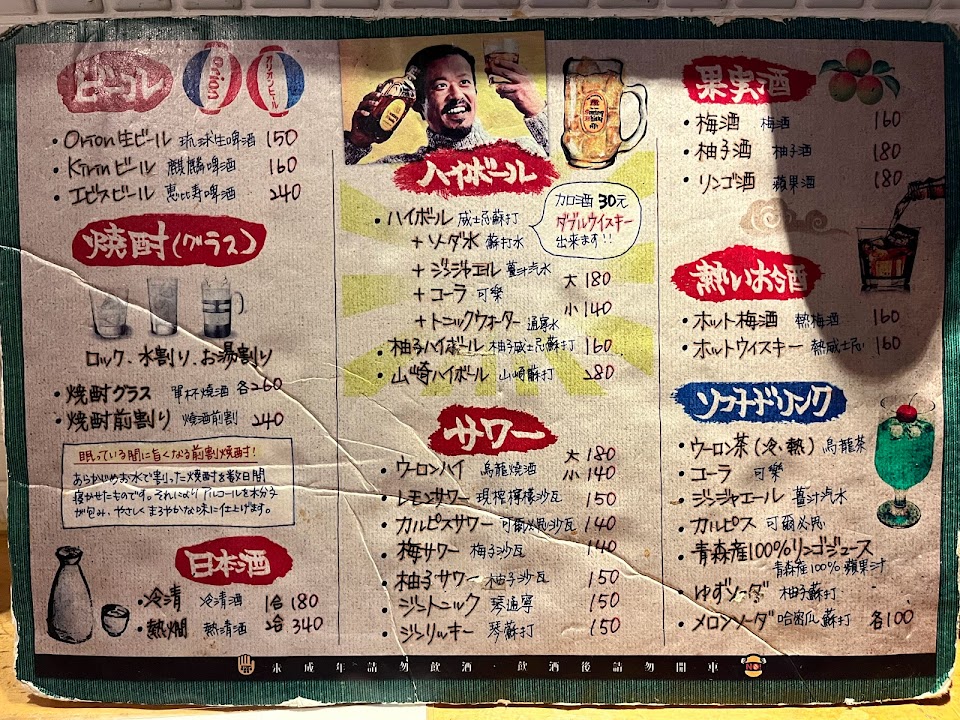 ビール
Orion
オリオンビール
・Orion生ビール 琉球生啤酒 150
・Kirinビール 麒麟啤酒 160
・エビスビール 恵比寿啤酒 240
焼酎(グラス)
ロック、水割り、お湯割り
・焼酎グラス 單杯燒酒 各260
・焼酎前割り 燒酒前割 240
眠っている間に旨くなる前割焼酎!
あらかじめお水で割した焼酎を数日間
寝かせたものです。それによりアルコールを水分子
が包み、やさしくまろやかな味に仕上げます。
日本酒
・冷清 冷清酒 1合 180
・熱燗 熱清酒 2合 340
ハイボール
・ハイボール 威士忌蘇打
加酒 30元
ダブルウイスキー
出来ます!!
+ソーダ水 蘇打水
+ジンジャエール 薑汁汽水
+コーラ 可樂
+トニックウォーター 通寧水
大 180
小 140
・柚子ハイボール 柚子威士忌蘇打 160
・山崎ハイボール 山崎蘇打 280
サワー
・ウーロンハイ 烏龍燒酒 大 180 小 140
・レモンサワー 現榨檸檬沙瓦 150
・カルピスサワー 可爾必思沙瓦 140
・梅サワー 梅子沙瓦 140
・柚子サワー 柚子沙瓦 150
・ジントニック 琴通寧 150
・ジンリッキー 琴蘇打 150
果実酒
・梅酒 梅酒 160
・柚子酒 柚子酒 180
・リンゴ酒 蘋果酒 180
熱いお酒
・ホット梅酒 熱梅酒 160
・ホットウイスキー 熱威士忌 160
ソフトドリンク
・ウーロン茶(冷・熱) 烏龍茶
・コーラ 可樂
・ジンジャエール 薑汁汽水
・カルピス 可爾必思
・青森産100%リンゴジュース
青森産100%蘋果汁
・ゆずソーダ 柚子蘇打
・メロンソーダ 哈密瓜蘇打 各100
未成年請勿飲酒·飲酒後請勿開車